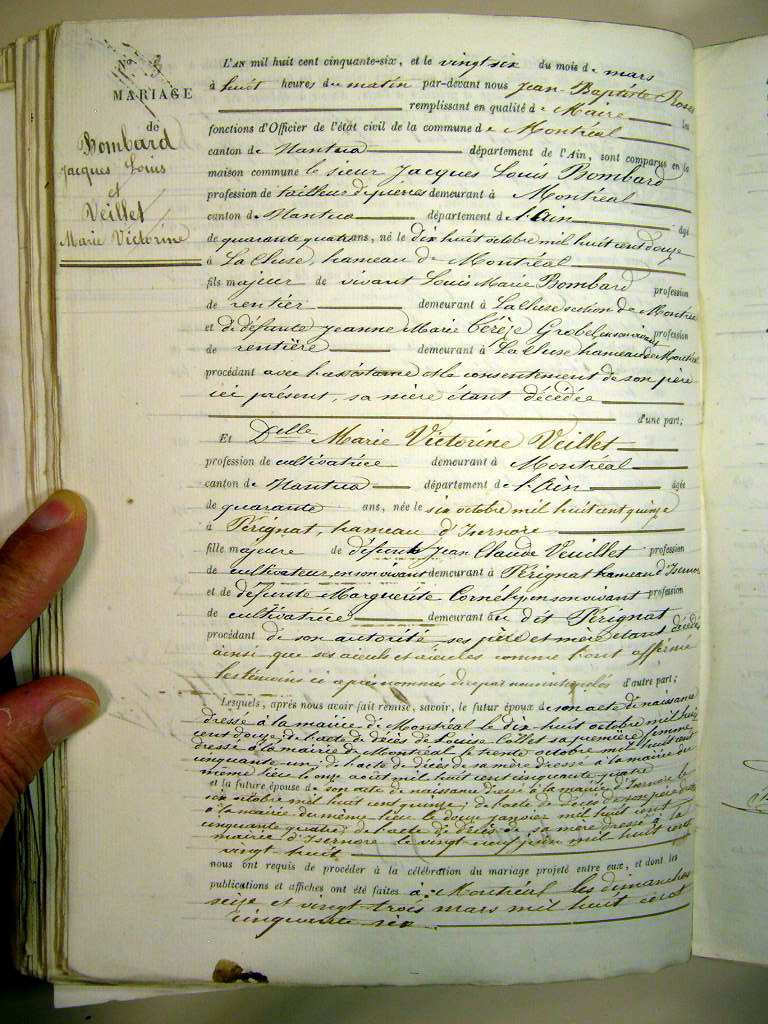 MARIAGE
de
Bombard
Jacques Louis
et
Veillet
Marie Victorine
L'AN mil huit cent cinquante-six, et le vingt six du mois de mars
à huit heures du matin par-devant nous Jean-Baptiste
remplissant en qualité de Maire les
fonctions d'Officier de l'état civil de la commune de Montréal
canton de Nantua département de l'Ain, sont comparus en la
maison commune le sieur Jacques Louis Bombard
profession de tailleur de pierres demeurant à Montréal
canton de Nantua département de l'Ain âgé
de quarante quatre ans, né le dix huit octobre mil huit cent douze
à La Cluse, hameau de Montréal
fils majeur de vivant Louis Marie Bombard profession
de rentier demeurant à La Cluse section de Montréal
et de défunte Jeanne Marie Térèze Grobel en son vivant profession
de rentière demeurant à La Cluse hameau de Montréal
procédant avec l'assistance et le consentement de son père
ici présent, sa mère étant décédée
d'une part;
Et Delle Marie Victorine Veillet
profession de cultivatrice demeurant à Montréal
canton de Nantua département de l'Ain âgée
de quarante ans, née le six octobre mil huit cent quinze
à Pérignat, hameau d'Isernore
fille majeure de défunt Jean Claude Veuillet profession
de cultivateur en son vivant demeurant à Pérignat hameau d'Isernore
et de défunte Marguerite en son vivant profession
de cultivatrice demeurant au dit Pérignat
procédant de son autorité ses père et mère étant décédés
ainsi que ses aïeuls et aïeules comme l'ont affirmé
les témoins ci après nommés d'autre part;
Lesquels, après nous avoir fait remise, savoir, le futur époux de son acte de naissance
dressé à la mairie de Montréal le dix huit octobre mil huit
cent douze, de l'acte de décès de Louise sa première femme
dressé à la mairie de Montréal le trente octobre mil huit cent
cinquante un; de l'acte de décès de sa mère dressé à la mairie du
même lieu le onze août mil huit cent cinquante quatre
et la future épouse de son acte de naissance dressé à la mairie d'Isernore le
six octobre mil huit cent quinze; de l'acte de décès de son père dressé
à la mairie du même lieu le douze janvier mil huit cent
cinquante quatre; de l'acte de décès de sa mère dressé à la
mairie d'Isernore le vingt neuf juin mil huit cent
vingt huit
nous ont requis de procéder à la célébration du mariage projeté entre eux, et dont les
publications et affiches ont été faites à Montréal les dimanches
seize et vingt trois mars mil huit cent
cinquante six